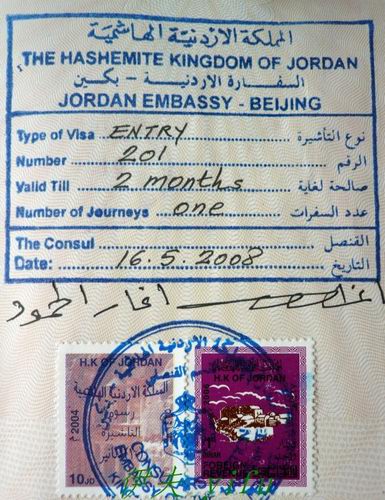 المملكة الاردنية الهاشمية
THE HASHEMITE KINGDOM OF JORDAN
السفارة الاردنية - بكين
JORDAN EMBASSY - BEIJING
Type of Visa ENTRY نوع التأشيرة
Number 201 الرقم
Valid Till 2 months صالحة لغاية
Number of Journeys one عدد السفرات
The Consul القنصل
Date: 16.5.2008 التاريخ
H.K OF JORDAN
المملكة الاردنية الهاشمية
رسوم
2004
10 JD
H.K OF JORDAN